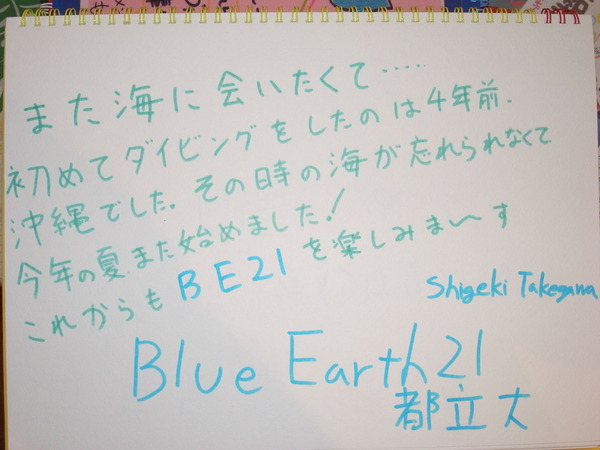 また海に会いたくて……
初めてダイビングをしたのは4年前.
沖縄でした。その時の海が忘れられなくて
今年の夏また始めました!
これからも BE21 を楽しみま〜す
Shigeki Takegawa
Blue Earth 21
都立大